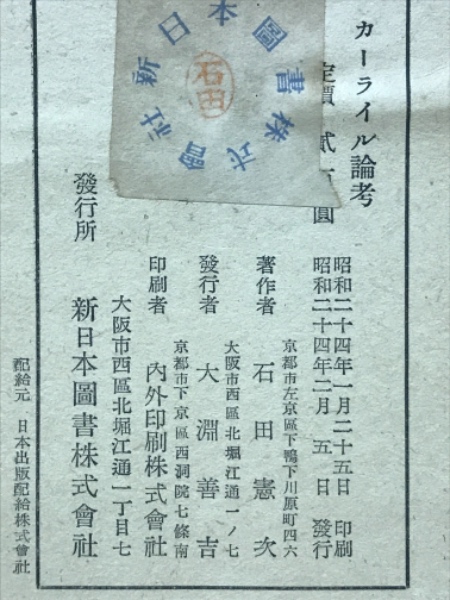 カーライル論考
定價 貳百圓
昭和二十四年一月二十五日 印刷
昭和二十四年二月 五日 發行
京都市左京區下鴨下川原町四六
著作者 石田憲次
大阪市西區北堀江通一ノ七
發行者 大淵善吉
京都市下京區西洞院七條南
印刷者 內外印刷株式會社
大阪市西區北堀江通一丁目七
發行所 新日本圖書株式會社
配給元 日本出版配給株式會社
新日本圖書株式會社
石田